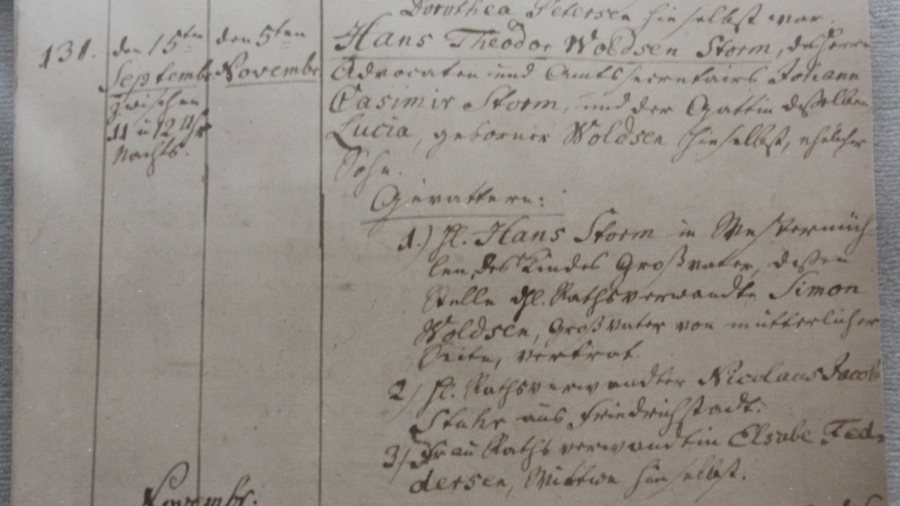 Dorothea Petersen hieselbst war.
131.
den 15ten
Septembr
zwischen
11 u 12 Uhr
Nachts.
den 5ten
Novembr
Hans Theodor Woldsen Storm, des Herrn
Advocaten und Amtssecretairs Johann
Casimir Storm, und der Gattin desselben
Lucia, geborner Woldsen hieselbst, ehelicher
Sohn.
Gevattern:
1.) H. Hans Storm in Westermüh-
len, des Kindes Großvater, dessen
Stelle H. Rathsverwandte Simon
Woldsen, Großvater von mütterlicher
Seite, vertrat.
2) H. Rathsverwandter Nicolaus Jacob
Stuhr aus Friedrichstadt.
3) Frau Rathsverwandtin Elsabe Fed-
dersen, Wittwe hieselbst.
Novembr.